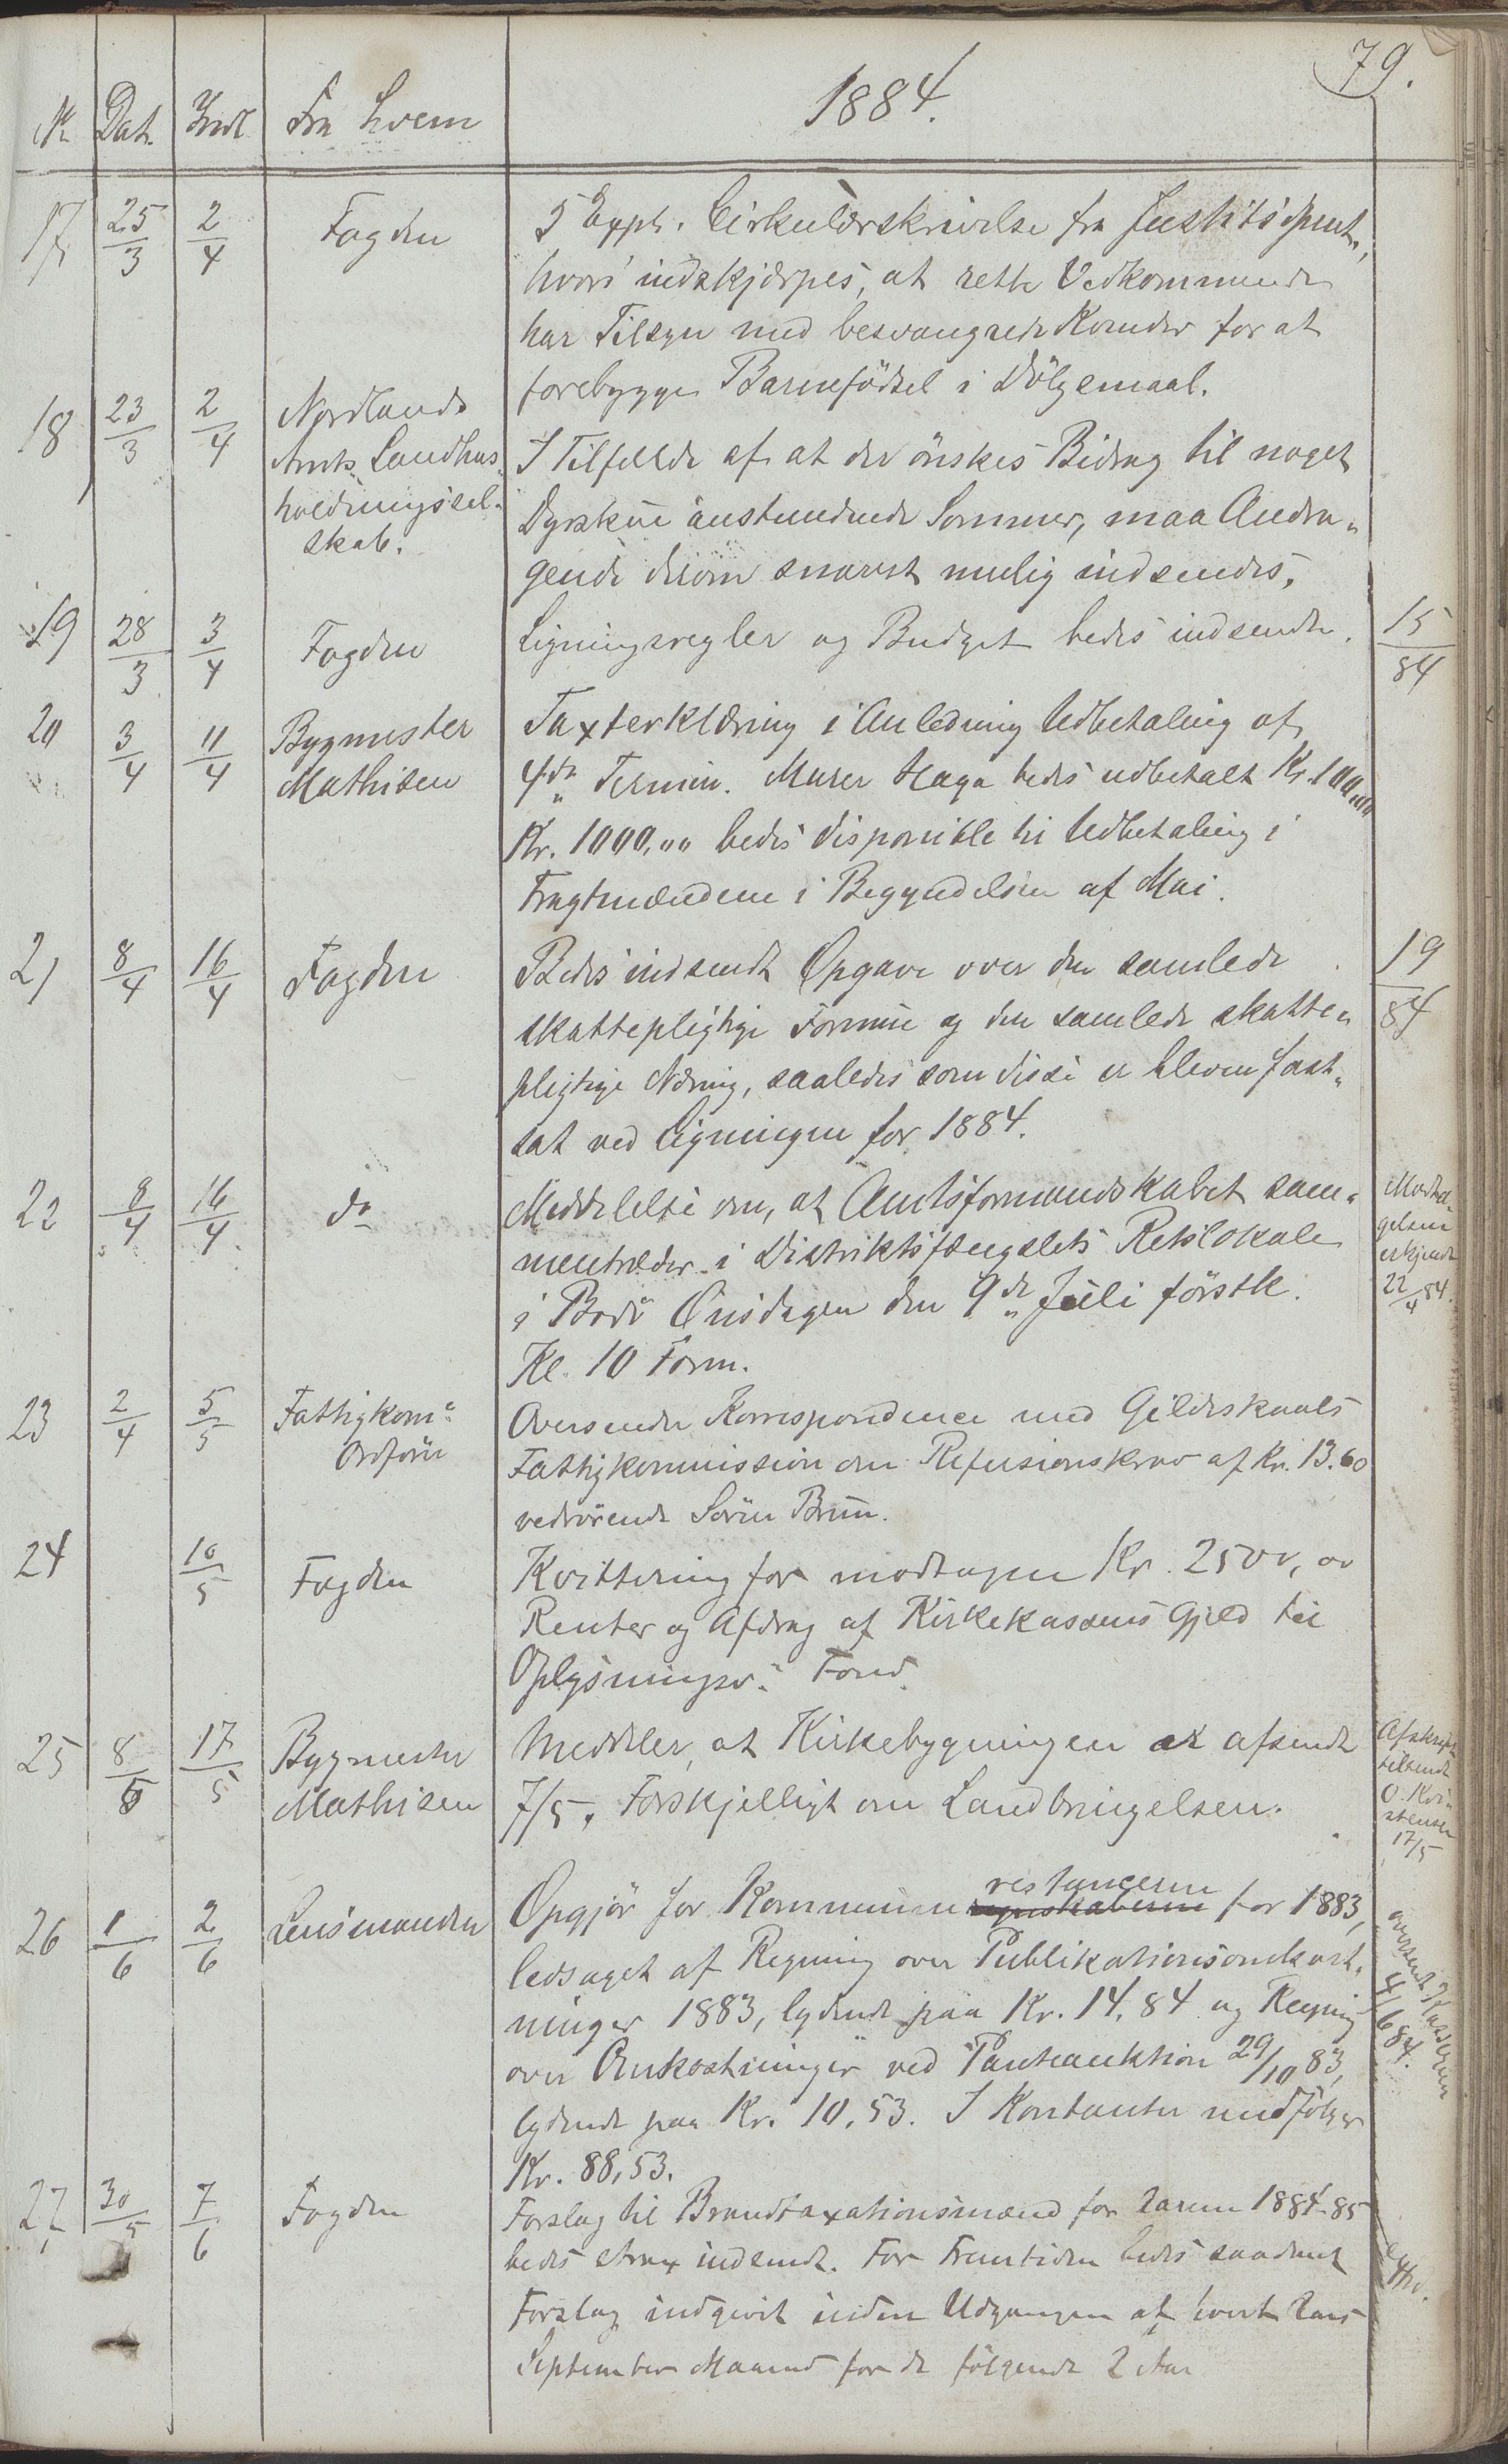 79.
1884.
No Dat. Indl Fra hvem
17 25/3 2/4 Fogden
5 Expl. Cirkulærskrivelse fra Justitsdpmt.,
hvori indskjærpes, at rette Vedkommende
har Tilsyn med besvangrede Kvinder for at
forebygge Barnefödsel i Dölgsmaal.
18 23/3 2/4 Nordlands
Amts Landhus-
holdningssel-
skab.
I Tilfælde af at der önskes Bidrag til noget
Dyrskue anstundende Sommer, maa Andra-
gende derom snarest mulig indsendes.
19 28/3 3/4 Fogden
Ligningsregler og Budget bedes indsendt.
15/84
20 3/4 11/4 Bygmester
Mathisen
Taxterklæring i Anledning Udbetaling af
4de Termin. Murer Haga bedes udbetalt Kr. 100,00
Kr. 1000,00 bedes disponible til Udbetaling i
Fragtmændene i Begyndelsen af Mai.
21 8/4 16/4 Fogden
Bedes indsendt Opgave over den samlede
skattepligtige Formue og den samlede skatte-
pligtige Næring, saaledes som disse er bleven fast-
sat ved Ligningen for 1884.
19/84
22 8/4 16/4 do
Meddelelse om, at Amtsformandskabet sam-
mentræder i Distriktsfængslets Retslokale
i Bodö Onsdagen den 9de Juli förstk.
Kl. 10 Form.
Modta-
gelsen
erkjendt
22/4 84.
23 2/4 5/5 Fattigkoms
Ordförer
Oversender Korrespondence med Gildeskaals
Fattigkommission om Refusionskrav af Kr. 13.60
vedrörende Sören Brun.
24 10/5 Fogden
Kvittering for modtagen Kr. 2500,00
Renter og Afdrag af Kirkekassens Gjæld til
Oplysningsv. Fond.
25 8/5 17/5 Bygmester
Mathisen
Meddeler, at Kirkebygningen er afsendt
7/5. Forskjelligt om Landbringelsen.
Afskrift
tilsendt
O. Kri-
stensen
17/5
26 1/6 2/6 Lensmanden
restancerne
Opgjör for Kommuneregnskaberne for 1883,
ledsaget af Regning over Publikationsomkost-
ninger 1883, lydende paa Kr. 14,84 og Regning
over Omkostninger ved Panteauktion 29/10 83,
lydende paa Kr. 10,53. I Kontanter medfölger
Kr. 88,53.
oversendt Kassereren
4/6 84.
27 30/5 7/6 Fogden
Forslag til Brandtaxationsmænd for Aarene 1884-85
bedes strax indsendt. For Fremtiden bedes saadant
Forslag indgivet inden Udgangen af hvert Aars
September Maaned for de fölgende 2 Aar